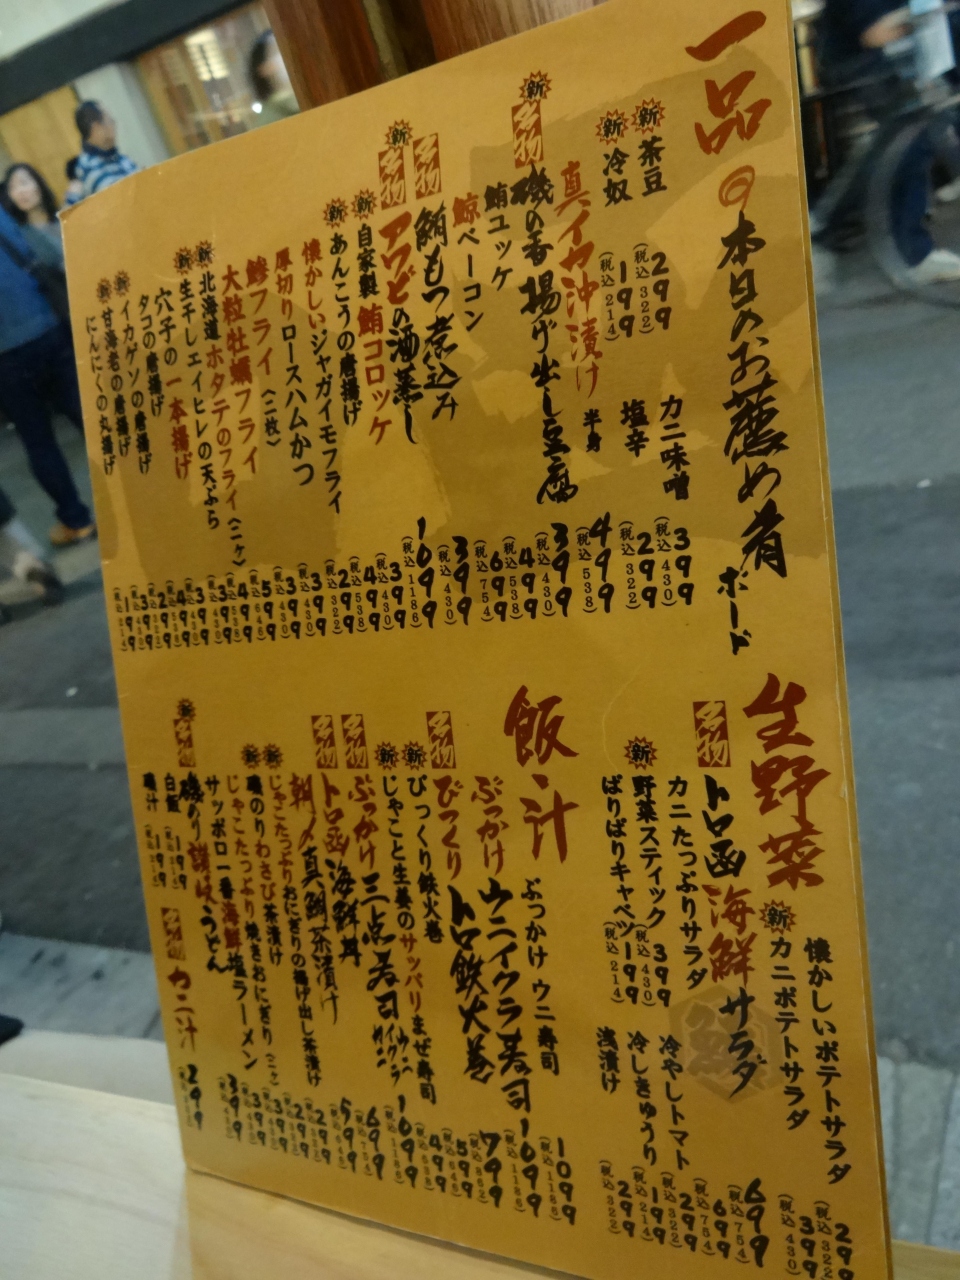 一品
本日のお薦め肴ボード
新 茶豆 299 (税込322)
新 冷奴 199 (税込214)
カニ味噌 399 (税込430)
塩辛 299 (税込322)
真イカ沖漬け 半身 499 (税込538)
新 名物 磯の香揚げ出し豆腐 399 (税込430)
鮪ユッケ 499 (税込538)
鯨ベーコン 699 (税込754)
名物 鮪もつ煮込み 399 (税込430)
新 名物 アワビの酒蒸し 1099 (税込1186)
新 自家製鮪コロッケ 399 (税込430)
新 あんこうの唐揚げ 499 (税込538)
懐かしいジャガイモフライ 299 (税込322)
厚切りロースハムかつ 399 (税込430)
鯵フライ (二枚) 399 (税込430)
大粒牡蠣フライ 599 (税込646)
新 北海道ホタテのフライ (二ヶ) 499 (税込538)
新 生干しエイヒレの天ぷら 399
穴子の一本揚げ 399
タコの唐揚げ 499
新 イカゲソの唐揚げ 299
新 甘海老の唐揚げ 399
にんにくの丸揚げ 199 (税込214)
生野菜
懐かしいポテトサラダ 299 (税込322)
新 カニポテトサラダ 399 (税込430)
名物 トロ函海鮮サラダ 699 (税込754)
カニたっぷりサラダ 699 (税込754)
新 野菜スティック 399 (税込430)
ばりばりキャベツ 199 (税込214)
冷やしトマト 299 (税込322)
冷しきゅうり 199 (税込214)
浅漬け 299 (税込322)
飯 汁
ぶっかけウニ寿司 1099 (税込1186)
ぶっかけウニイクラ寿司 1099 (税込1186)
名物 びっくりトロ鉄火巻 799 (税込862)
新 びっくり鉄火巻 599 (税込646)
新 じゃこと生姜のサッパリまぜ寿司 499 (税込538)
名物 ぶっかけ三点寿司 ウニ イクラ カニ 1099 (税込1186)
名物 トロ函海鮮丼 699 (税込754)
〆真鯛茶漬け 599 (税込646)
じゃこたっぷりおにぎりの揚げ出し茶漬け 299
新 磯のりわさび茶漬け 299
新 じゃこたっぷり焼きおにぎり (二ヶ) 399
サッポロ一番海鮮塩ラーメン 399
新 名物 磯のり讃岐うどん 399
白飯 199 (税込214)
磯汁 199 (税込214)
名物 カニ汁 299